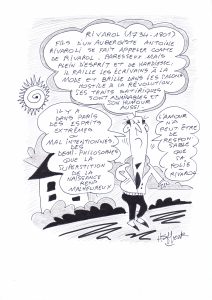 RIVAROL (1754-1801)
FILS D'UN AUBERGISTE ANTOINE
RIVAROLI SE FAIT APPELER COMTE
DE RIVAROL, PARESSEUX MAIS
PLEIN D'ESPRIT ET DE HARDIESSE
IL RAILLE LES ÉCRIVAINS À LA
MODE ET BRILLE DANS LES SALONS
HOSTILE A LA RÉVOLUTION,
LES TRAITS SATIRIQUES
SONT ABONDANTS ET
SON HUMOUR
AUSSI.
IL Y A
DANS PARIS
DES ESPRITS
EXTRÊMES
MAL INTENTIONNÉS,
DES
DEMI-PHILOSOPHES
QUE LA
SUPERSTITION
DE LA
NAISSANCE
REND
MALHEUREUX
L'AMOUR
N'A
PEUT ÊTRE
DE
RESPON-
SABLE
QUE
SA
FOLIE
RIVAROL